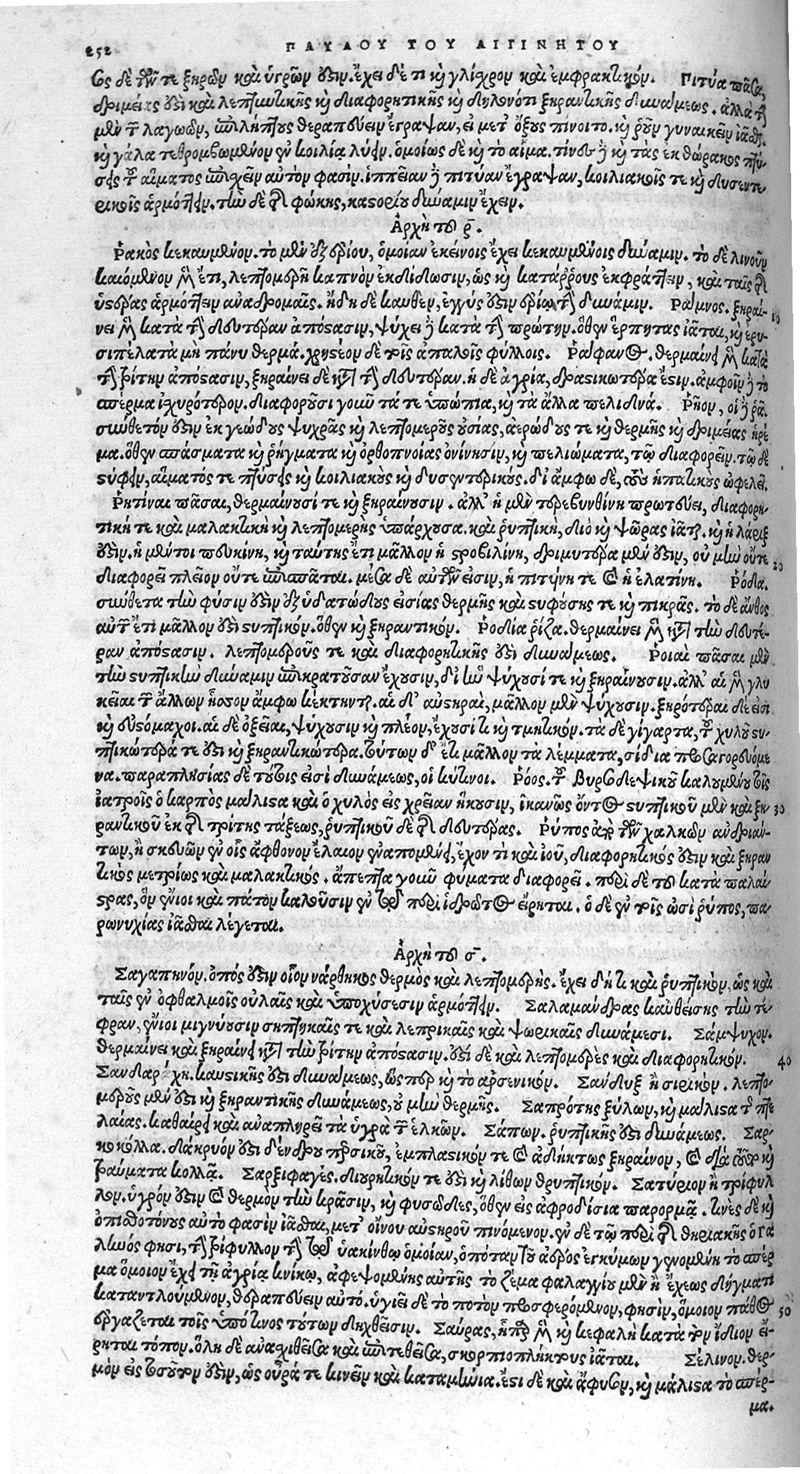 252 ΠΑΥΛΟΥ ΤΟΥ ΑΙΓΙΝΗΤΟΥ
ὡς δὲ τῶν τε ξηρῶν καὶ ὑγρῶν ἐστιν. ἔχει δέ τι καὶ γλίσχρον καὶ ἐμφρακτικόν. Πιτύα πᾶσα,
δριμείας ἐστὶ καὶ λεπτυντικῆς καὶ διαφορητικῆς καὶ δηλονότι ξηραντικῆς δυνάμεως. ἀλλὰ τὴν
μὲν τοῦ λαγωοῦ, ἐπιλήπτους θεραπεύειν ἔγραψαν, εἰ μετ' ὄξους πίνοιτο. καὶ ῥοῦν γυναικεῖον ἰᾶσθαι,
καὶ γάλα τεθρομβωμένον ἐν κοιλίᾳ λύειν. ὁμοίως δὲ καὶ τὸ αἷμα. τινὲς δὲ καὶ τὰς ἐκ θώρακος πτύ-
σεις τοῦ αἵματος ἐπέχειν αὐτὸν φασίν. ἱππείαν δὲ πιτύαν ἔγραψαν, κοιλιακοῖς τε καὶ δυσεντε-
ρικοῖς ἁρμόττειν. τὴν δὲ τῆς φώκης, καστορίου δύναμιν ἔχειν.
Ἀρχὴ τοῦ ρ̄.
Ῥάκος κεκαυμένον. τὸ μὲν ἐξ ἐρίου, ὁμοίαν ἐκείνοις ἔχει κεκαυμένοις δύναμιν. τὸ δὲ λινοῦν
καιόμενον μὲν ἔτι, λεπτομερῆ καπνὸν ἐκδίδωσιν, ὡς καὶ κατάρρους ἐκφράττειν, καὶ ταῖς τῆς
ὑστέρας ἁρμόττειν ἀναδρομαῖς. ἤδη δὲ καυθὲν, ἐγγύς ἐστιν ἐρίῳ τὴν δύναμιν. Ῥάμνος. ξηραί- 10
νει μὲν κατὰ τὴν δευτέραν ἀπόστασιν, ψύχει δὲ κατὰ τὴν πρώτην. ὅθεν ἕρπητας ἰᾶται, καὶ ἐρυ-
σιπέλατα μὴ πάνυ θερμά. χρηστέον δὲ τοῖς ἁπαλοῖς φύλλοις. Ῥάφανος. θερμαίνει μὲν κατὰ
τὴν τρίτην ἀπόστασιν, ξηραίνει δὲ κατὰ τὴν δευτέραν. ἡ δὲ ἀγρία, δραστικωτέρα ἐστίν. ἀμφοῖν δὲ τὸ
σπέρμα ἰσχυρότερον. διαφοροῦσι γοῦν τά τε ὑπώπια, καὶ τὰ ἄλλα πελιδνά. Ῥῆον, οἱ δὲ ῥᾶ.
συνθετόν ἐστιν ἐκ γεώδους ψυχρᾶς καὶ λεπτομεροῦς οὐσίας, ἀερώδους τε καὶ θερμῆς καὶ δριμείας ἠρέ
μα. ὅθεν σπάσματα καὶ ῥήγματα καὶ ὀρθοπνοίας ὀνίνησιν, καὶ πελιώματα, τῷ διαφορεῖν. τῷ δὲ
στύφειν, αἵματός τε πτύσεις καὶ κοιλιακοὺς καὶ δυσεντερικούς. δι' ἄμφω δὲ, τοὺς ἡπατικοὺς ὠφελεῖ.
Ῥητῖναι πᾶσαι, θερμαίνουσί τε καὶ ξηραίνουσιν. ἀλλ' ἡ μὲν τερεβινθίνη πρωτεύει, διαφορη-
τική τε καὶ μαλακτικὴ καὶ λεπτομερὴς ὑπάρχουσα. καὶ ῥυπτικὴ, διὸ καὶ ψώρας ἰᾶται. καὶ ἡ λάριξ
ἐστιν. ἡ μέντοι πευκίνη, καὶ ταύτης ἔτι μᾶλλον ἡ στροβιλίνη, δριμυτέρα μέν ἐστιν, οὐ μὴν οὔτε 20
διαφορεῖ πλεῖον οὔτε ἐπισπᾶται. μέσαι δὲ αὐτῶν εἰσιν, ἥ πιτυΐνη τε καὶ ἡ ἐλατίνη. Ῥόδα.
σύνθετα τὴν φύσιν ἐστιν ἐξ ὑδατώδους οὐσίας θερμῆς καὶ στυφούσης τε καὶ πικρᾶς. τὸ δὲ ἄνθος
αὐτοῦ ἔτι μᾶλλόν ἐστι στυπτικόν. ὅθεν καὶ ξηραντικόν. Ῥοδία ῥίζα. θερμαίνει μὲν κατὰ τὴν δευτέ-
ραν ἀπόστασιν. λεπτομεροῦς τε καὶ διαφορητικῆς ἐστι δυνάμεως. Ῥοιαὶ πᾶσαι μὲν
τὴν στυπτικὴν δύναμιν ἐπικρατοῦσαν ἔχουσιν, δι' ἣν ψύχουσί τε καὶ ξηραίνουσιν. ἀλλ' αἱ μὲν γλυ
κεῖαι τῶν ἄλλων ἧττον ἄμφω κέκτηνται. αἱ δ' αὐστηραὶ, μᾶλλον μὲν ψύχουσιν. ξηρότεραι δέ εἰσι
καὶ εὐστόμαχοι. αἱ δὲ ὀξεῖαι, ψύχουσιν καὶ πλέον, ἔχουσί τι καὶ τμητικόν. τὰ δὲ γίγαρτα, τοῦ χυλοῦ στυ-
πτικώτερά τε ἐστι καὶ ξηραντικώτερα. τούτων δ' ἔτι μᾶλλον τὰ λέμματα, σίδια προσαγορευόμε
να. παραπλησίας δὲ τούτοις εἰσὶ δυνάμεως, οἱ κύτινοι. Ῥόος. τοῦ βυρσοδεψικοῦ καλουμένου τοῖς
ἰατροῖς ὁ καρπὸς μάλιστα καὶ ὁ χυλὸς εἰς χρείαν ἥκουσιν, ἱκανῶς ὄντος στυπτικοῦ μὲν καὶ ξη 30
ραντικοῦ ἐκ τῆς τρίτης τάξεως, ῥυπτικοῦ δὲ τῆς δευτέρας. Ῥύπος ἀπὸ τῶν χαλκῶν ἀνδριάν-
των, ἢ σκευῶν ἐν οἷς ἄφθονον ἔλαιον ἐναπομένει, ἔχον τι καὶ ἰοῦ, διαφορητικός ἐστιν καὶ ξηραν
τικὸς μετρίως καὶ μαλακτικός. ἄπεπτα γοῦν φύματα διαφορεῖ. περὶ δὲ τοῦ κατὰ παλαί-
στρας, ὃν ἔνιοι καὶ πάτον καλοῦσιν ἐν τῷ περὶ ἱδρῶτος εἴρηται. ὁ δὲ ἐν τοῖς ὠσὶ ῥύπος, πα-
ρωνυχίας ἰᾶσθαι λέγεται.
Ἀρχὴ τοῦ σ̄.
Σαγαπηνόν. ὀπός ἐστιν οἷον νάρθηκος θερμὸς καὶ λεπτομερής. ἔχει δή τι καὶ ῥυπτικὸν, ὡς καὶ
ταῖς ἐν ὀφθαλμοῖς οὐλαῖς καὶ ὑποχύσεσιν ἁρμόττειν. Σαλαμάνδρας καυθείσης τὴν τέ-
φραν, ἔνιοι μιγνύουσιν σηπτικαῖς τε καὶ λεπρικαῖς καὶ ψωρικαῖς δυνάμεσι. Σάμψυχον.
θερμαίνει καὶ ξηραίνει κατὰ τὴν τρίτην ἀπόστασιν. ἐστὶ δὲ καὶ λεπτομερὲς καὶ διαφορητικόν. 40
Σανδαράχη. καυστικῆς ἐστι δυνάμεως, ὥσπερ καὶ τὸ ἀρσενικόν. Σάνδυξ ἢ σιρικόν. λεπτο-
μεροῦς μέν ἐστι καὶ ξηραντικῆς δυνάμεως, οὐ μὴν θερμῆς. Σαπρότης ξύλων, καὶ μάλιστα τοῦ πτε
λαίας. καθαίρει καὶ ἀναπληροῖ τὰ ὑγρὰ τῶν ἑλκῶν. Σάπων. ῥυπτικῆς ἐστι δυνάμεως. Σαρ-
κοκόλλα. δάκρυόν ἐστι δένδρου περσικοῦ, ἐμπλαστικόν τε καὶ ἀδήκτως ξηραῖνον, καὶ διὰ τοῦτο καὶ
τραύματα κολλᾷ. Σαρξιφαγές. διουρητικόν τε ἐστι καὶ λίθων θρυπτικόν. Σατύριον ἢ τρίφυλ
λον. ὑγρόν ἐστιν καὶ θερμὸν τὴν κρᾶσιν, καὶ φυσῶδες, ὅθεν εἰς ἀφροδίσια παρορμᾷ. τινὲς δὲ καὶ
ὀπισθοτόνους αὐτὸ φασὶν ἰᾶσθαι, μετ' οἴνου αὐστηροῦ πινόμενον. ἐν δὲ τῷ περὶ τῆς θηριακῆς ὁ γα
ληνὸς φησι, τὴν τρίφυλλον τὴν τῷ ὑακίνθῳ ὁμοίαν, ὁπόταν τοῦ ἀέρος ἐγκύμων γενομένη τὸ σπέρ
μα ὅμοιον ἔχει τῇ ἀγρίᾳ κνίκῳ, ἀφεψομένης αὐτῆς τὸ ζέμα φαλαγγίου μὲν ἢ ἔχεως δήγματι
καταντλούμενον, θεραπεύειν αὐτό. ὑγιεῖ δὲ τὸ ποτὸν προσφερόμενον, φησιν, ὅμοιον πάθος 50
ἐργάζεται τοῖς ὑπό τινος τούτων δηχθεῖσιν. Σαύρας, ἧπαρ μὲν καὶ κεφαλὴ κατὰ τὸν ἴδιον εἴ-
ρηται τόπον. ὅλη δὲ ἀνασχισθεῖσα καὶ ἐπιτεθεῖσα, σκορπιοπλήκτους ἰᾶται. Σέλινον. θερ-
μὸν εἰς τοσοῦτόν ἐστιν, ὡς οὖρά τε κινεῖν καὶ καταμήνια. ἔστι δὲ καὶ ἄφυσον, καὶ μάλιστα τὸ σπέρ-
μα.